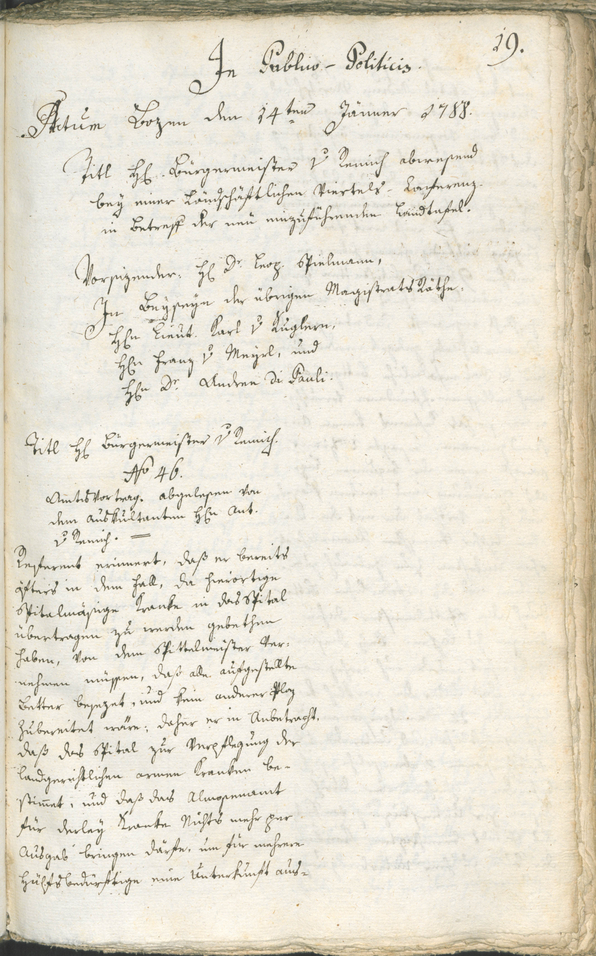 19.
In Publico-Politicis.
Actum Bozen den 14ten Jänner 1788.
Titl H: Bürgermeister v Remich abwesend
bey einer Landschäftlichen Viertels-Konferenz
in Betreff der neu einzuführenden Landtafel.
Vorsizender. H Dr. Leop. Spielmann,
In Beyseyn der übrigen Magistrats Räthe.
Hn Lieut. Karl v Kuglern,
Hn Franz v Mayrl, und
Hn Dr. Andree Di Pauli.
Titl H Bürgermeister v Remich.
No 46.
Amtsvortrag. abgelesen von
dem Auskultanten Hn Ant.
v Remich. =
Referent erinnert, daß er bereits
öfters in dem Fall, da hierortige
Spitalmäsige Kranke in das Spital
übertragen zu werden gebethen
haben, von dem Spittelmeister ver-
nehmen müssen, daß alle aufgestellte
Better besezet, und kein anderer Plaz
zubereitet wäre; daher er in Anbetracht,
daß das Spital zur Verpflegung der
Landgerichtlichen armen Kranken be-
stimmt, und daß das Almosenamt
für derley Kranke Nichts mehr per
Ausgab bringen därfe, um für mehrere
Hülfsbedürftige eine Unterkunft aus-